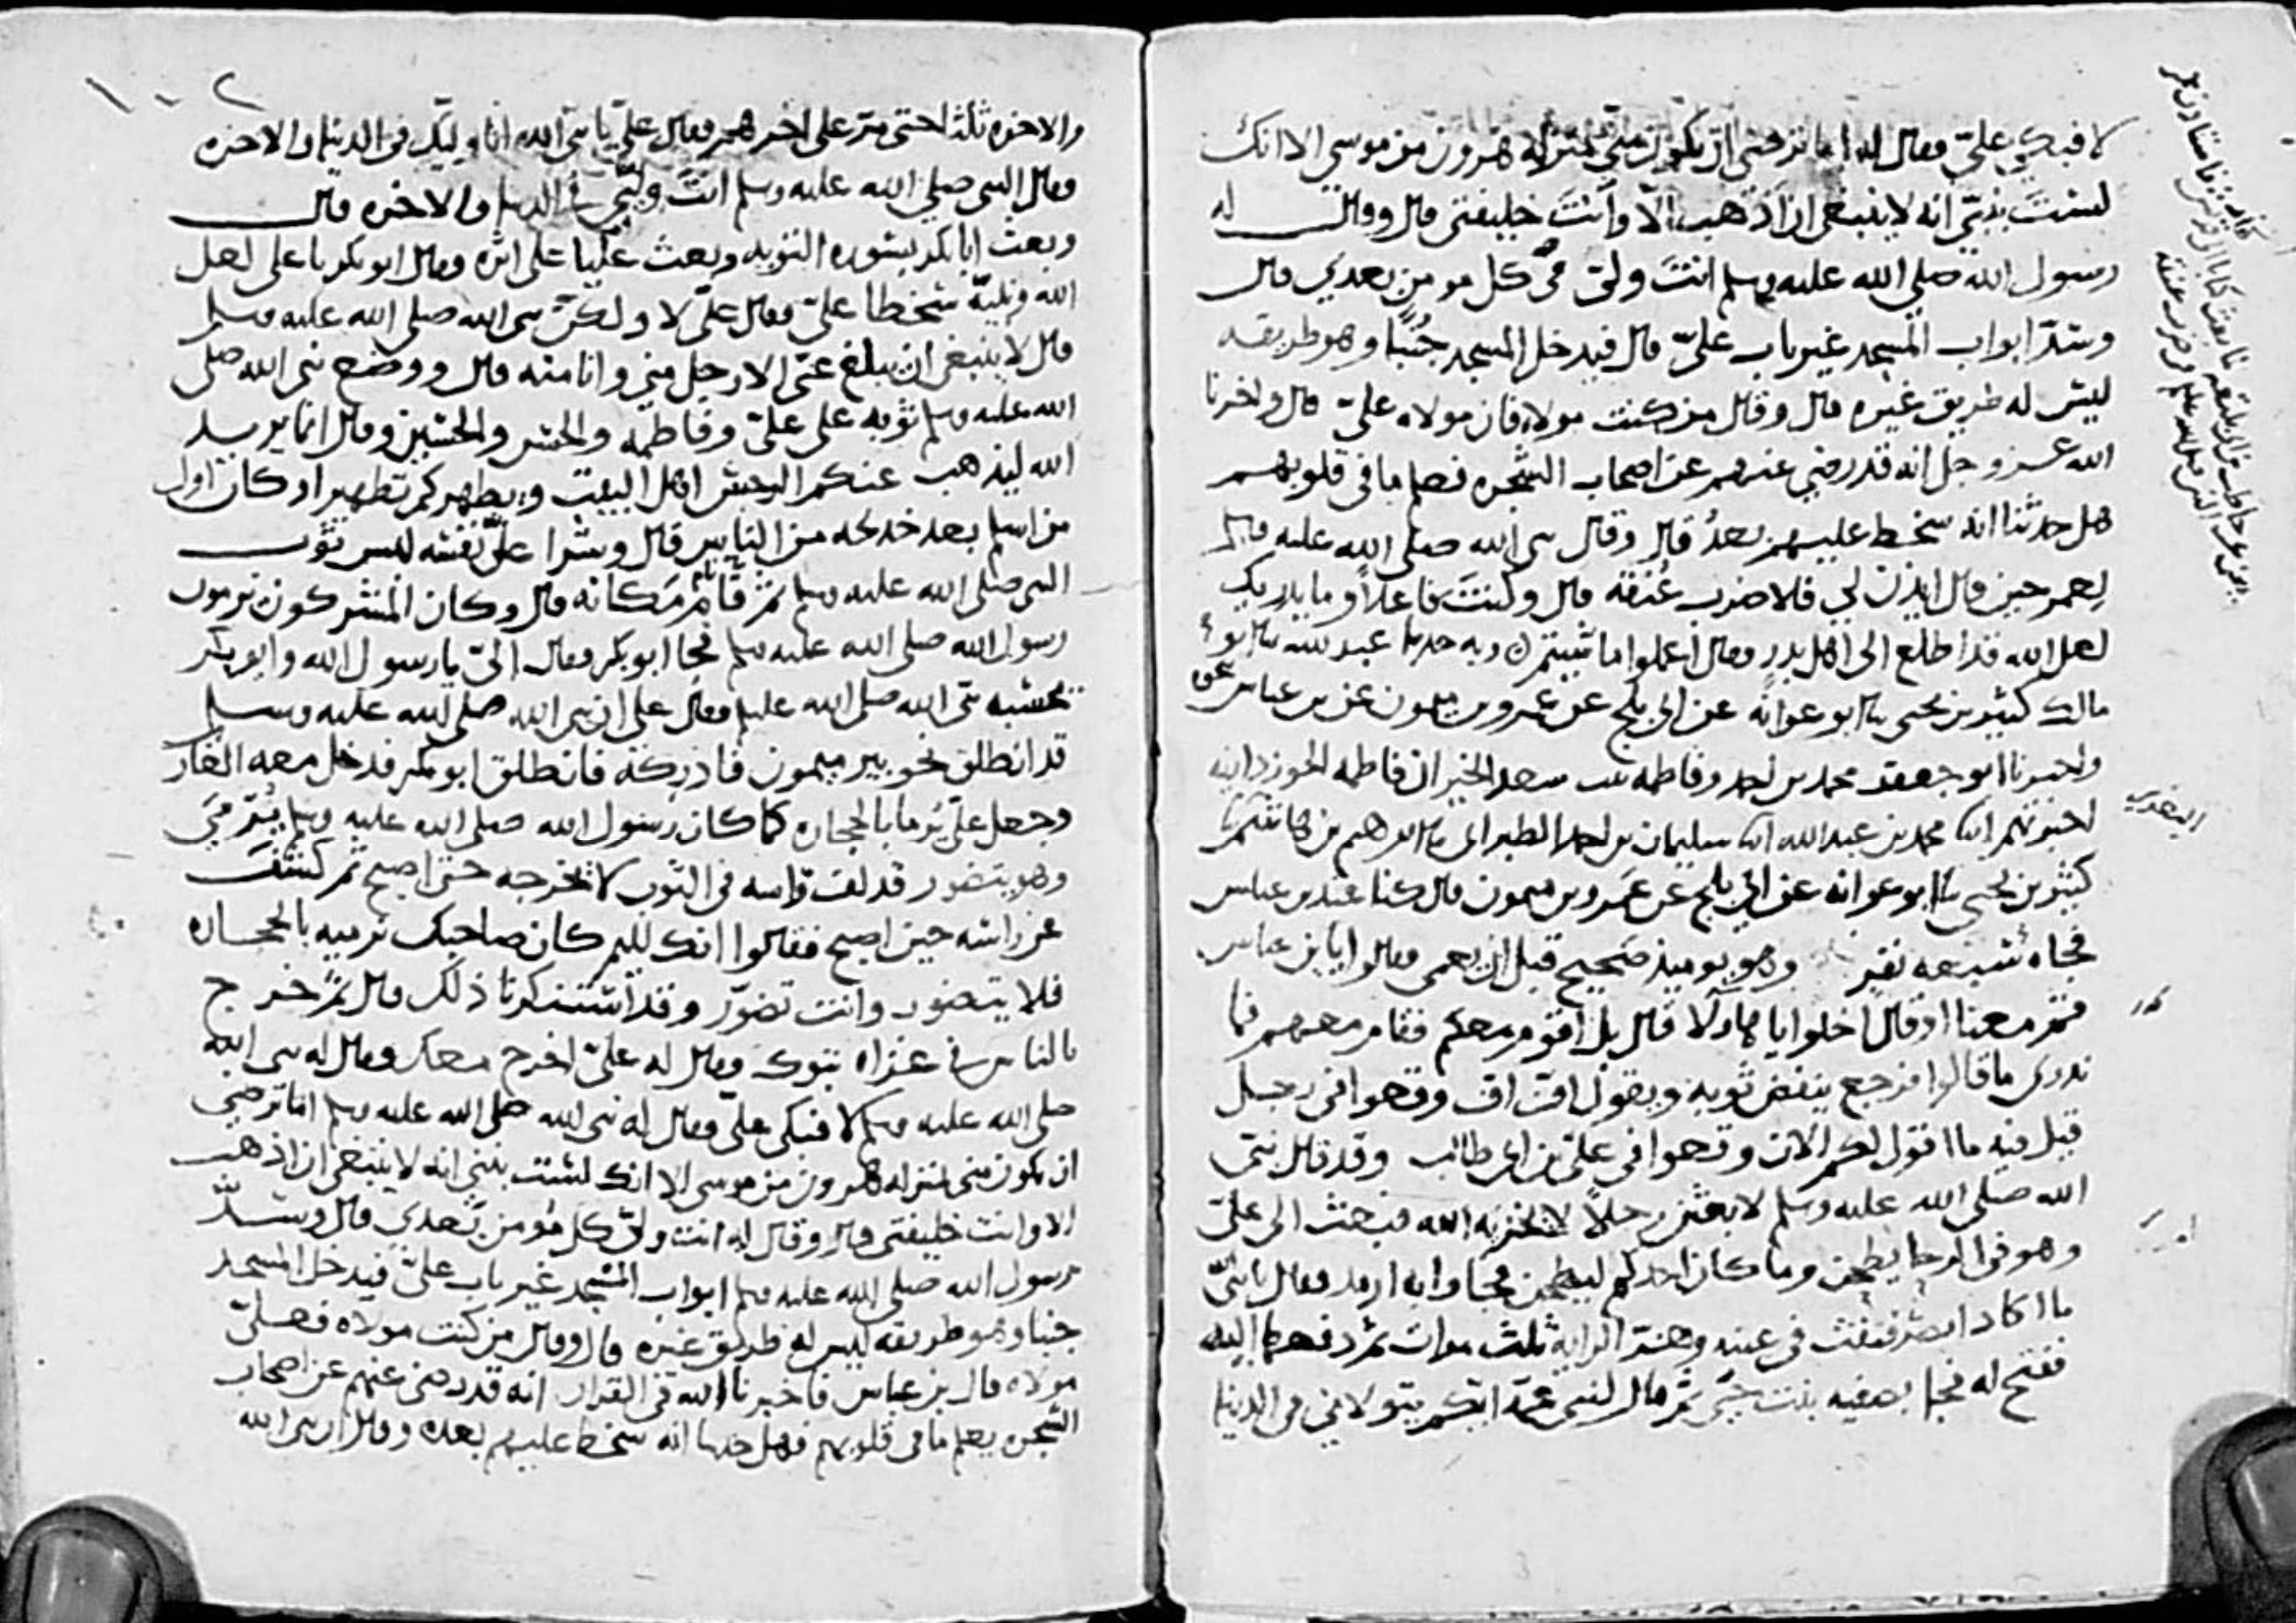 لا فبكى علي وقال له اما ترضى ان تكون مني بمنزلة هرون من موسى الا انك
لست بنبي انه لا ينبغي ان اذهب الا وانت خليفتي قال وقال له
رسول الله صلى الله عليه وسلم انت ولي كل مومن بعدي قال
وسد ابواب المسجد غير باب علي قال فيدخل المسجد جنبا وهو طريقه
ليس له طريق غيره قال وقال من كنت مولاه فان مولاه علي قال واخبرنا
الله عز وجل انه قد رضي عنهم عن اصحاب الشجره فعلم ما في قلوبهم
هل حدثنا انه سخط عليهم بعد قال وقال نبي الله صلى الله عليه وسلم
لعمر حين قال ايذن لي فلاضرب عنقه قال وكنت فاعلا وما يدريك
لعل الله قد اطلع الى اهل بدر وقال اعملوا ما شيتم وبه حدثنا عبد الله ثنا ابو
مالك كثير بن يحيى ثنا ابو عوانه عن ابي بلج عن عمرو بن ميمون عن بن عباس نحوه
واخبرنا ابو جعفر محمد بن احمد وفاطمه بنت سعد الخير ان فاطمه الجوزدانيه
اخبرتهم ابنا محمد بن عبد الله ابنا سليمان بن احمد الطبراني ثنا ابراهيم بن هاشم ثنا
البغوي
كثير بن يحيى ثنا ابو عوانه عن ابي بلج عن عمرو بن ميمون قال كنا عند بن عباس
فجاه سبعه نفر وهو يوميذ صحيح قبل ان يعمى فقالوا يا بن عباس
قم معنا او قال اخلوا يا هاولا قال بل اقوم معكم فقام معهم فما
ندري ما قالوا فرجع ينفض ثوبه ويقول اف اف وقعوا في رجل
قيل فيه ما اقول لكم الان وقعوا في علي بن ابي طالب وقد قال نبي
الله صلى الله عليه وسلم لابعثن رجلا لا يخزيه الله فبعث الى علي
وهو في الرحا يطحن وما كان احدكم ليطحن فجاوا به ارمد فقال يا نبي
ما اكاد ابصر فنفث في عينه وهز الرايه ثلث مرات ثم دفعها اليه
ففتح له فجا بصفيه بنت حيي ثم قال لبني عمه ايكم يتولاني في الدنيا
١٠٢
والاخره ثلثا حتى مر على اخرهم فقال علي يا نبي الله انا وليك في الدنيا والاخره
فقال النبي صلى الله عليه وسلم انت وليي في الدنيا والاخره قال
وبعث ابا بكر بسوره التوبه وبعث عليا على اثره فقال ابو بكر يا علي لعل
الله ونبيه سخطا علي فقال علي لا ولكن نبي الله صلى الله عليه وسلم
قال لا ينبغي ان يبلغ عني الا رجل مني وانا منه قال ووضع نبي الله صلى
الله عليه وسلم ثوبه على علي وفاطمه والحسن والحسين وقال انما يريد
الله ليذهب عنكم الرجس اهل البيت ويطهركم تطهيرا وكان اول
من اسلم بعد خديجه من الناس قال وشرا علي نفسه لبس ثوب
النبي صلى الله عليه وسلم ثم قام مكانه قال وكان المشركون يرمون
رسول الله صلى الله عليه وسلم فجا ابو بكر فقال الي يا رسول الله وابو بكر
يحسبه نبي الله صلى الله عليه وسلم فقال علي ان نبي الله صلى الله عليه وسلم
قد انطلق نحو بير ميمون فادركه فانطلق ابو بكر فدخل معه الغار
وجعل علي يرما بالحجاره كما كان رسول الله صلى الله عليه وسلم يرمى
وهو يتضور قد لف راسه في الثوب لا يخرجه حتى اصبح ثم كشف
عن راسه حين اصبح فقالوا انك لليم كان صاحبك نرميه بالحجاره
فلا يتضور وانت تضور وقد استنكرنا ذلك قال ثم خرج
بالناس في غزاه تبوك وقال له علي اخرج معك فقال له نبي الله
صلى الله عليه وسلم لا فبكى علي فقال له نبي الله صلى الله عليه وسلم اما ترضى
ان تكون مني بمنزله هرون من موسى الا انك لست بنبي انه لا ينبغي ان اذهب
الا وانت خليفتي قال وقال له انت ولي كل مومن بعدي قال وسد
رسول الله صلى الله عليه وسلم ابواب المسجد غير باب علي فيدخل المسجد
جنبا وهو طريقه ليس له طريق غيره قال وقال من كنت مولاه فعلي
مولاه قال بن عباس فاخبرنا الله في القران انه قد رضي عنهم عن اصحاب
الشجره يعلم ما في قلوبهم فهل حدثنا انه سخط عليهم بعده وقال ان نبي الله